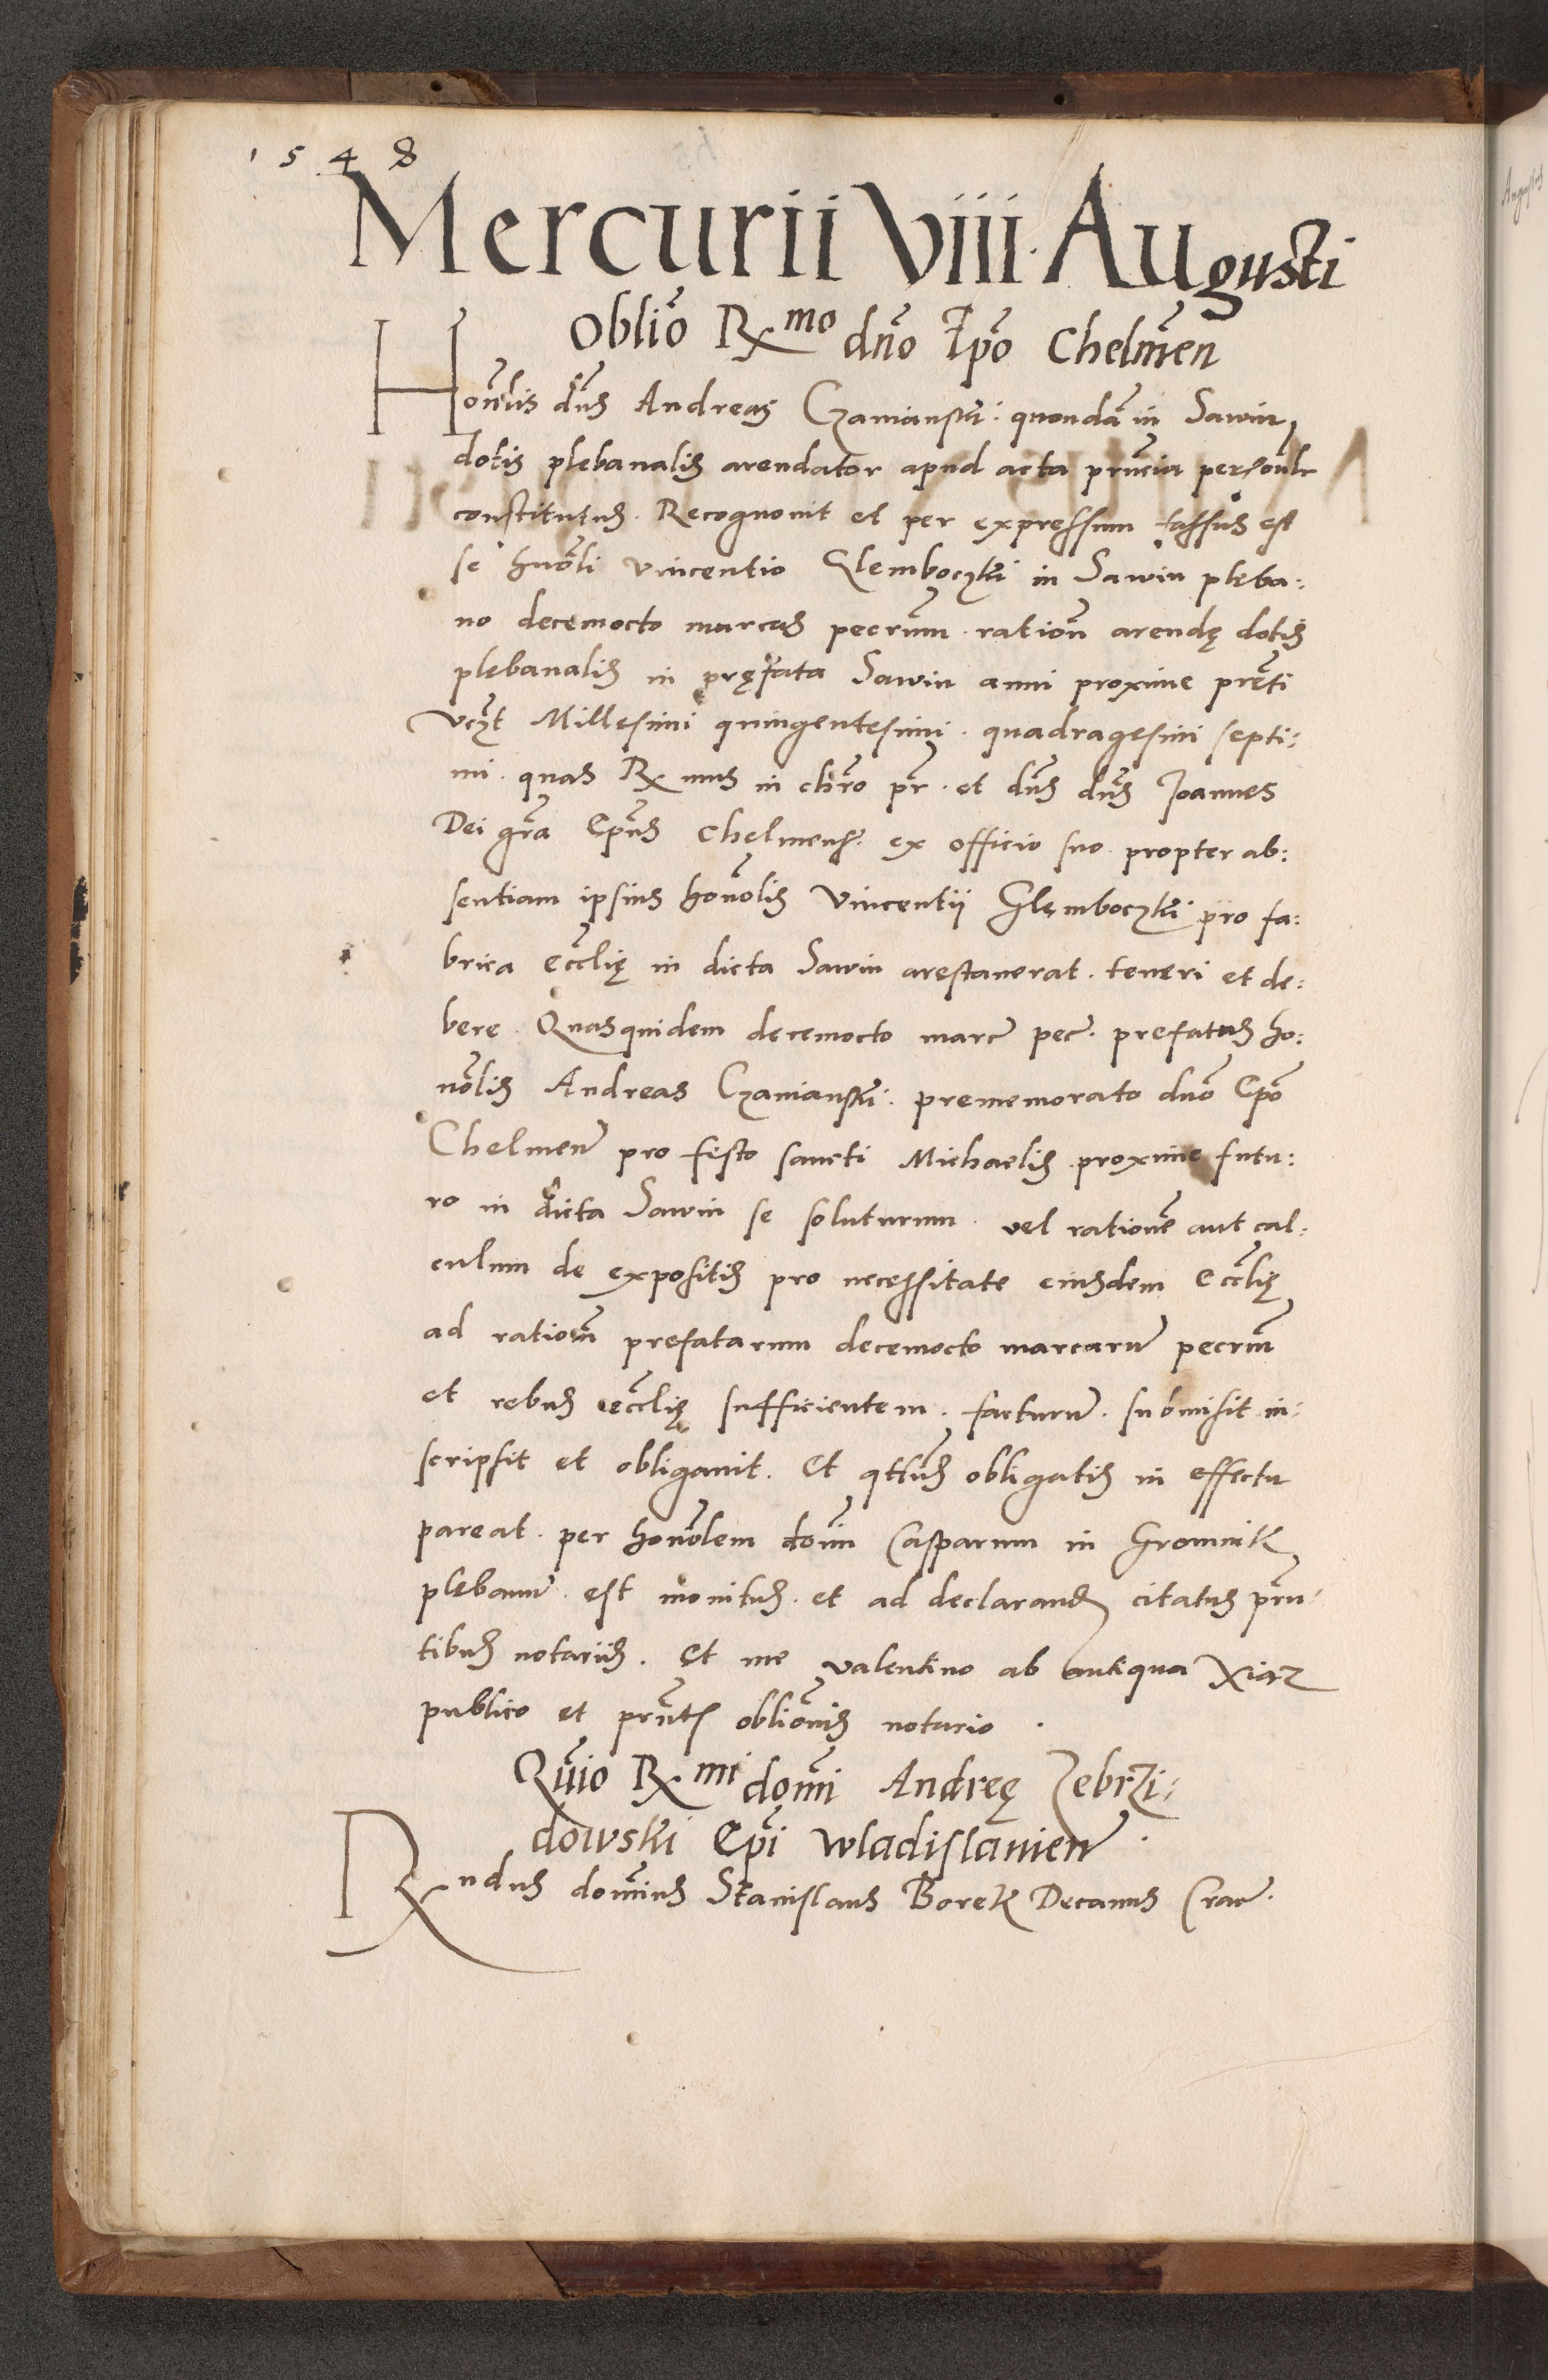 1548
Mercurii viii Augusti
Oblio Rx mo dno Epo Chelmen
Honlis dns Andreas Czanianski quondam in Sawin
dotis plebanalis arendator apud acta prncia personlr
constitutus. Recognovit et per expressum fassus est
se hnoli Vincentio Glemboczki in Sawin pleba:
no decemocto marcas pecrum ration arendę dotis
plebanalis in pręfata Sawin anni proxime prēti
vczt Millesimi quingentesimi quadragesimi septi:
mi. quas Rx mus in chro pr. et dns dns Joannes
Dei gra Epus Chelmens. ex officio suo propter ab:
sentiam ipsius honolis Vincentii Glemboczki pro fa:
brica ecclię in dicta Sawin arestaverat. teneri et de:
bere. Quasquidem decemocto marc pec. prefatus ho:
nolis Andreas Czanianski. prememorato dno Epo
Chelmen pro festo sancti Michaelis proxime futu:
ro in dicta Sawin se soluturum. vel rationē aut cal:
culum de expositis pro necessitate eiusdem Ecclię
ad ration prefatarum decemocto marcarum pecrum
et rebus ecclię sufficientem. facturum. submisit in:
scripsit et obligavit. Et qtus obligatis in effectu
pareat. per honolem domi Casparum in
plebanum. est monitus. et ad declarand citatus prn:
tibus notariis. Et me Valentino ab antiqua Xiaz
publico et prnts oblionis notario.
Quio Rx mi domi Andreę Zebrzi:
dowski Epi Wladislavien.
Rxndus dominus Stanislaus Borek Decanus Crac.